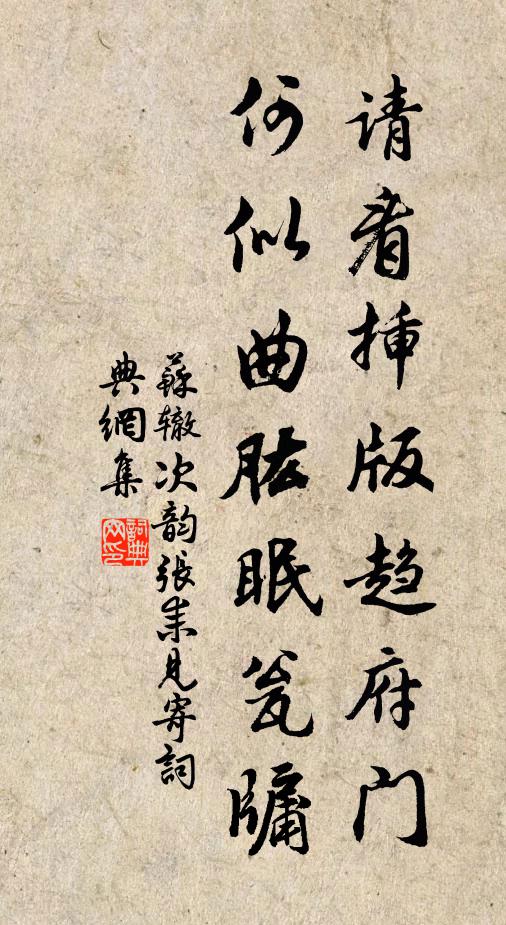 请看插版趋府门
何似曲肱眠瓮牖
蘇辙次韵張耒見寄詞
典網集
詞典
网印